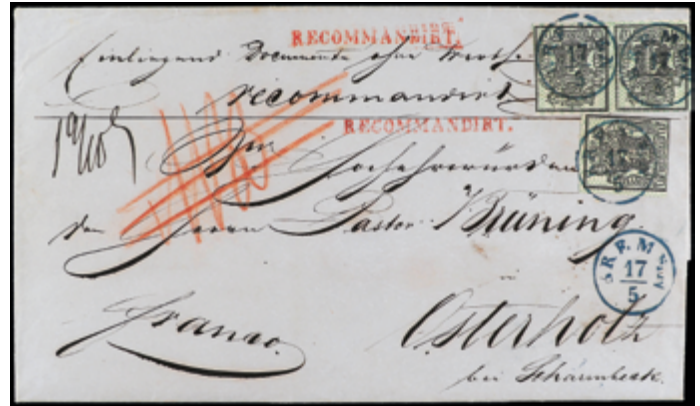 RECOMMANDIRT.
Einliegend Documente ohne Werth.
recommandirt
RECOMMANDIRT.
Sr Hochehrwürden
dem Herrn Pastor Brüning
BREM
17
5
Franco.
Osterholz
bei Scharmbeck.